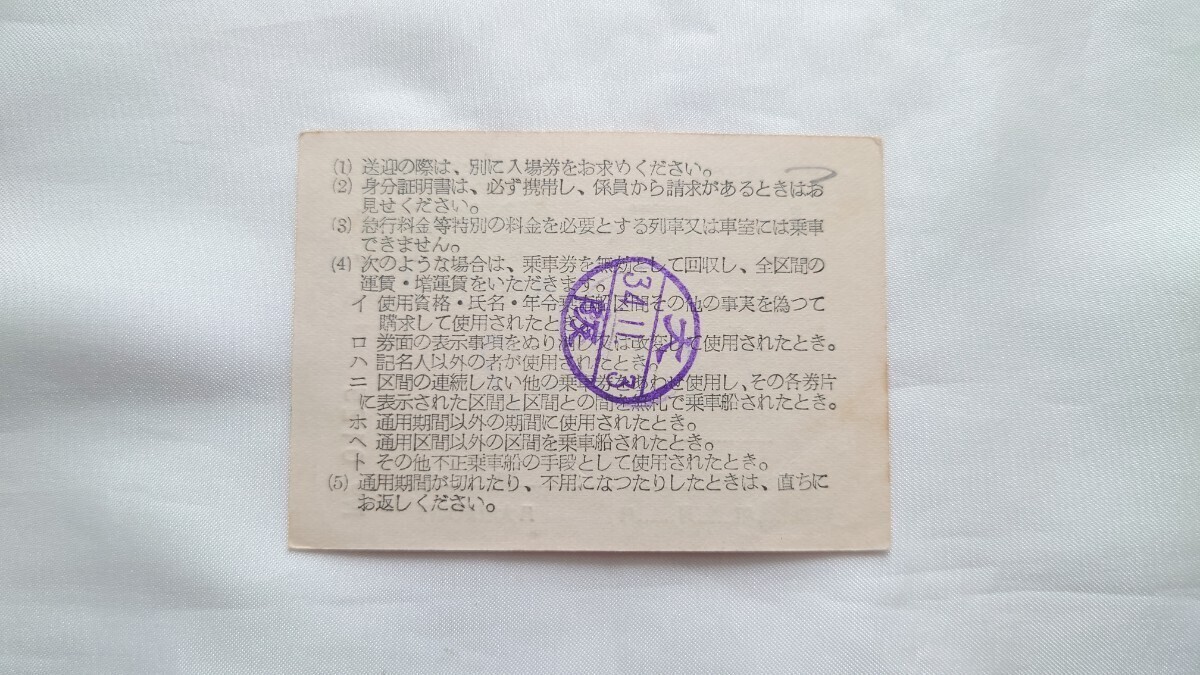 (1) 送迎の際は、別に入場券をお求めください。
(2) 身分証明書は、必ず携帯し、係員から請求があるときはお
見せください。
(3) 急行料金等特別の料金を必要とする列車又は車室には乗車
できません。
(4) 次のような場合は、乗車券を無効として回収し、全区間の
運賃・増運賃をいただきます。
イ 使用資格・氏名・年令乗車船区間その他の事実を偽つて
購求して使用されたとき
ロ 券面の表示事項をぬり消し又は改変して使用されたとき。
ハ 記名人以外の者が使用されたとき
ニ 区間の連続しない他の乗車券をあわせ使用し、その各券片
に表示された区間と区間との間を無札で乗車船されたとき。
ホ 通用期間以外の期間に使用されたとき。
ヘ 通用区間以外の区間を乗車船されたとき。
ト その他不正乗車船の手段として使用されたとき。
(5) 通用期間が切れたり、不用になつたりしたときは、直ちに
お返しください。
大
34.11.3
阪